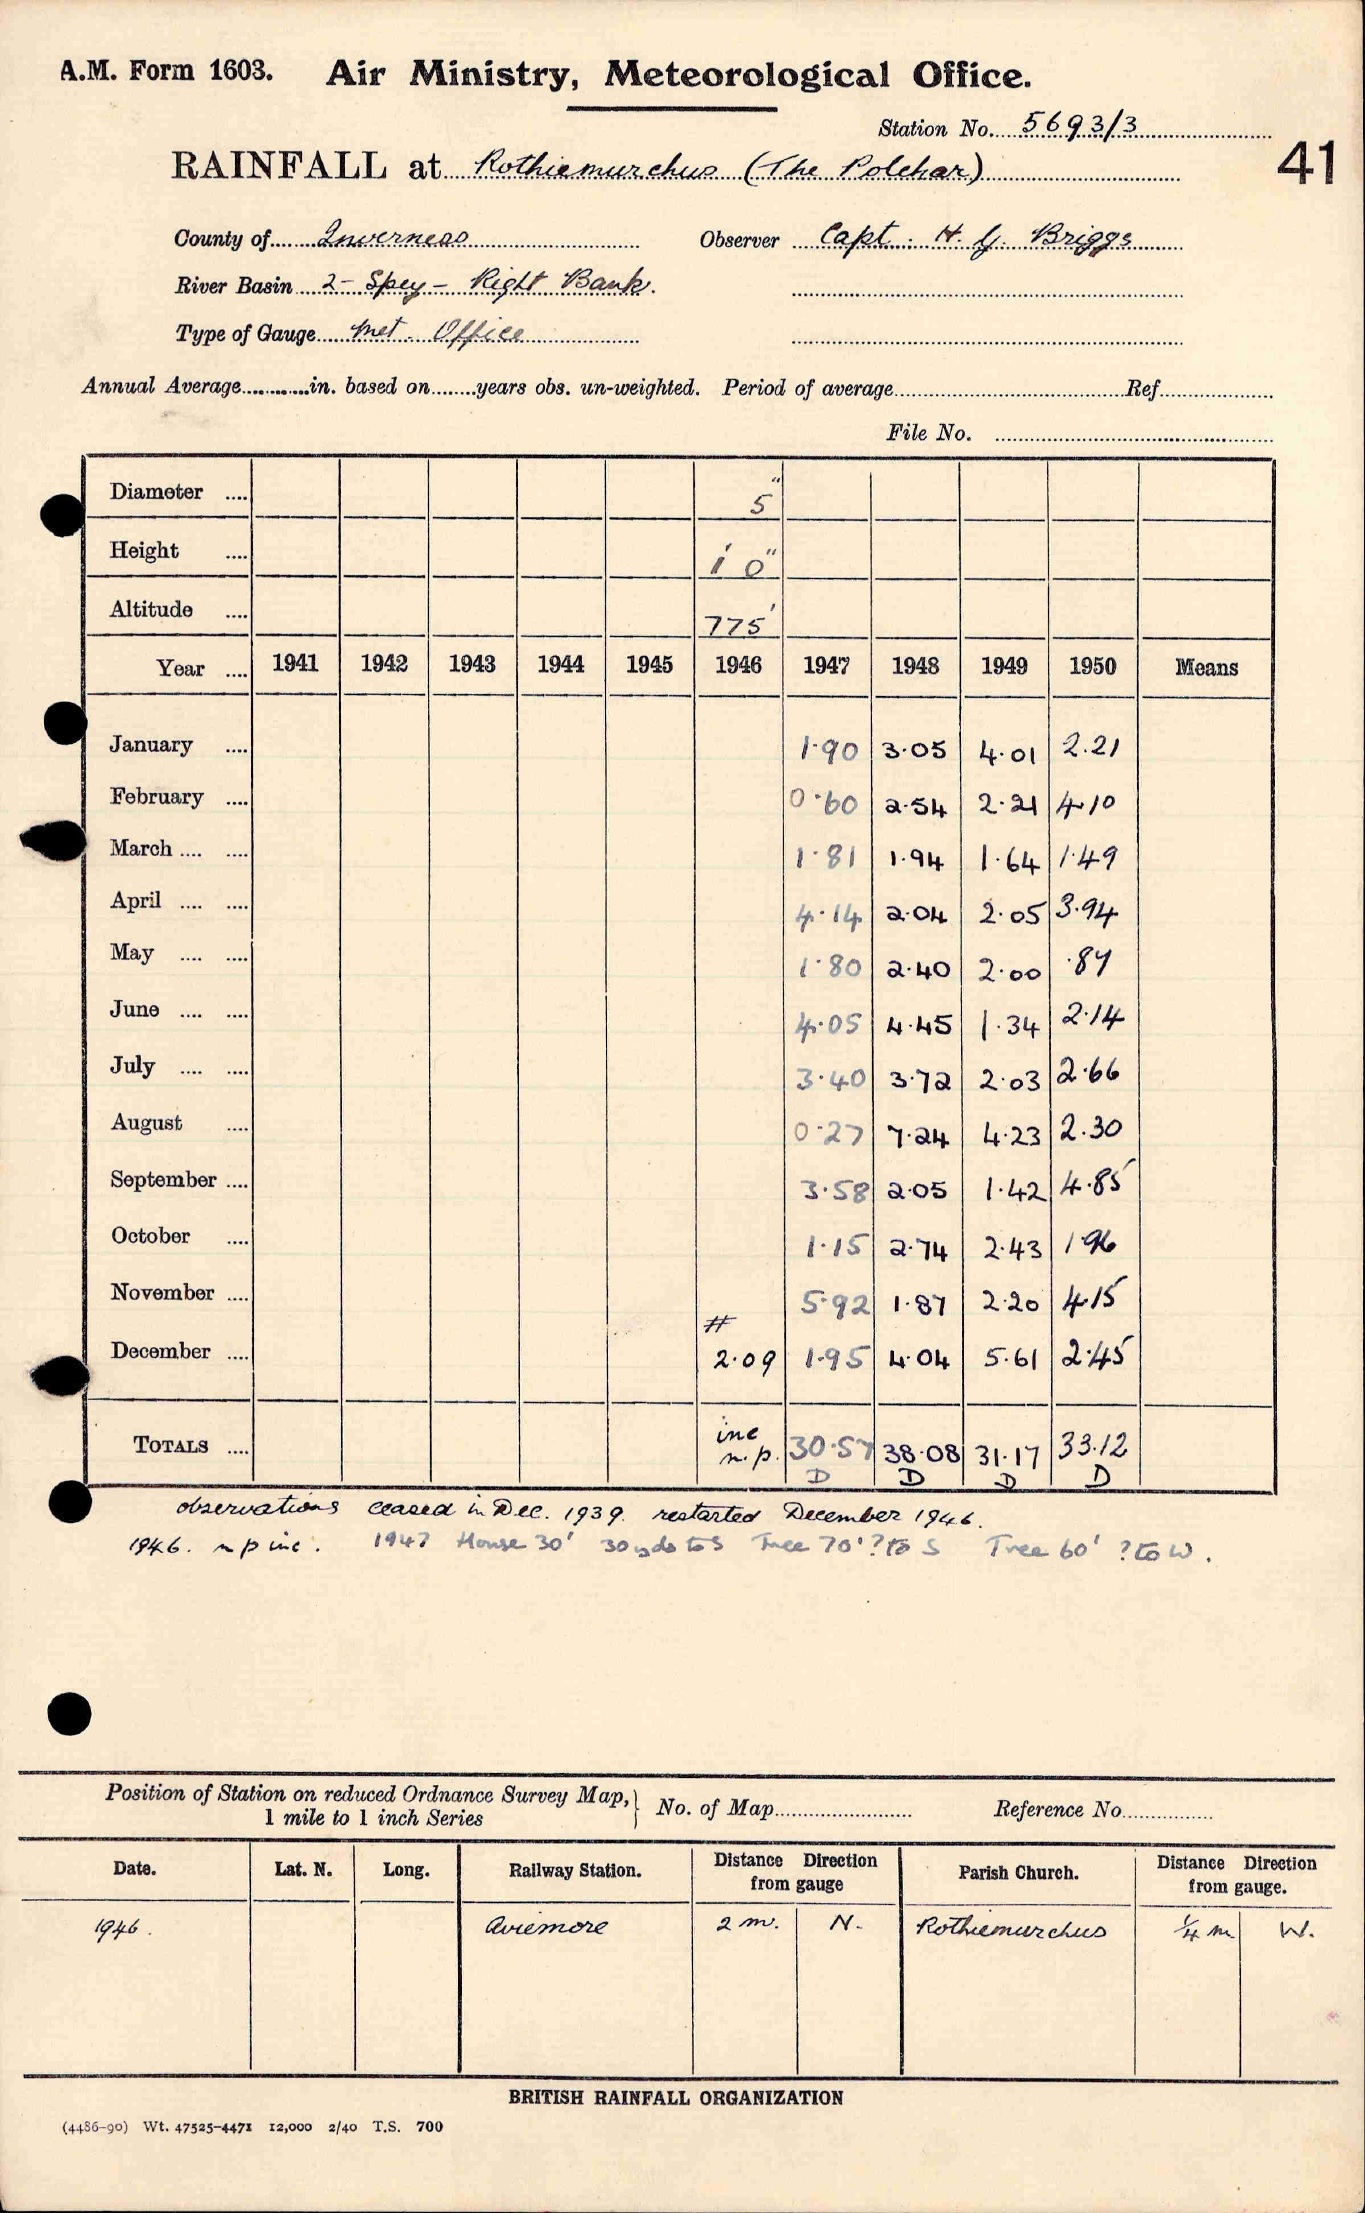 A.M. Form 1603. Air Ministry, Meteorological Office.
Station No. 5693/3
41
RAINFALL at Rothiemurchus (The Polchar)
County of Inverness Observer Capt. H. G. Briggs
River Basin 2 - Spey - Right Bank.
Type of Gauge Met. Office
Annual Average in. based on years obs. un-weighted. Period of average Ref
File No.
Diameter .... 5"
Height .... 1' 0"
Altitude .... 775'
Year .... 1941 1942 1943 1944 1945 1946 1947 1948 1949 1950 Means
January .... 1.90 3.05 4.01 2.21
February .... 0.60 2.54 2.21 4.10
March .... .... 1.81 1.94 1.64 1.49
April .... .... 4.14 2.04 2.05 3.94
May .... .... 1.80 2.40 2.00 .87
June .... .... 4.05 4.45 1.34 2.14
July .... .... 3.40 3.72 2.03 2.66
August .... 0.27 7.24 4.23 2.30
September .... 3.58 2.05 1.42 4.85
October .... 1.15 2.74 2.43 1.96
November .... 5.92 1.87 2.20 4.15
#
December .... 2.09 1.95 4.04 5.61 2.45
TOTALS .... inc n.p. 30.57 38.08 31.17 33.12
D D D D
observations ceased in Dec. 1939. restarted December 1946.
1946. n p inc. 1947 House 30' 30 yds to S Tree 70' ? to S Tree 60' ? to W.
Position of Station on reduced Ordnance Survey Map, 1 mile to 1 inch Series } No. of Map Reference No.
Date. Lat. N. Long. Railway Station. Distance Direction from gauge Parish Church. Distance Direction from gauge.
1946. Aviemore 2 m. N. Rothiemurchus 1/4 m W.
BRITISH RAINFALL ORGANIZATION
(4486-90) Wt. 47525-4471 12,000 2/40 T.S. 700